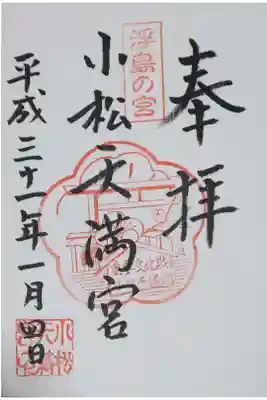 奉拝
浮島の宮
小松天満宮
平成三十一年一月四日